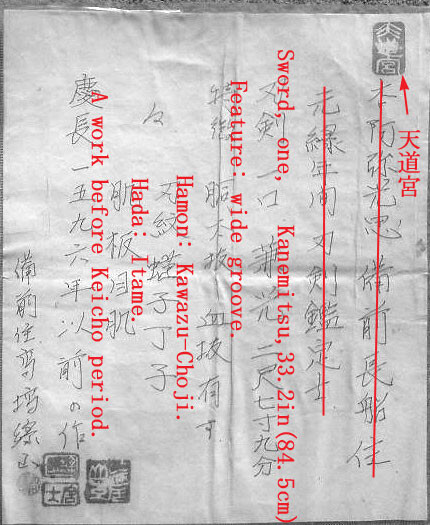 天道宮
本阿弥光忠 備前長船住
元緑年间刃剣鑑定士
Sword, one, Kanemitsu, 33.2in(84.5cm)
刃剣一口 兼光 二尺七寸九分
Feature: wide groove.
特徴 血抜有す
Hamon: Kawazu-Choji.
刃紋 蟇子丁子
Hada: Itame.
肌板目肌
A work before Keicho period.
慶長一五九六年以前の作
備前住